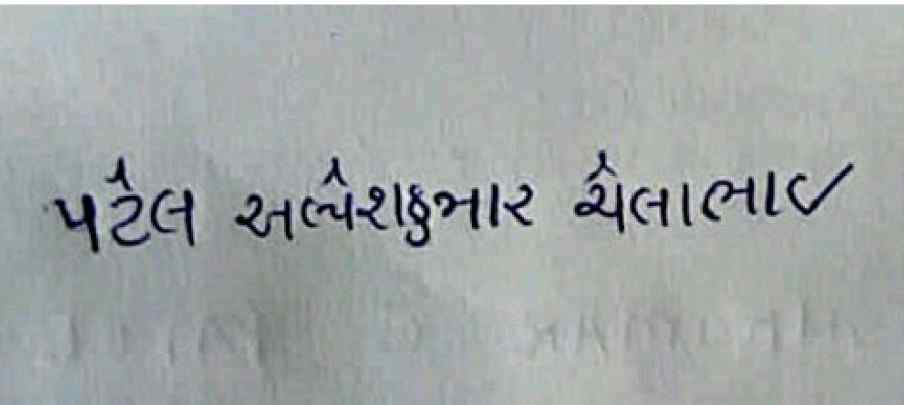 પટેલ અલ્પેશકુમાર ચેલાભાઇ